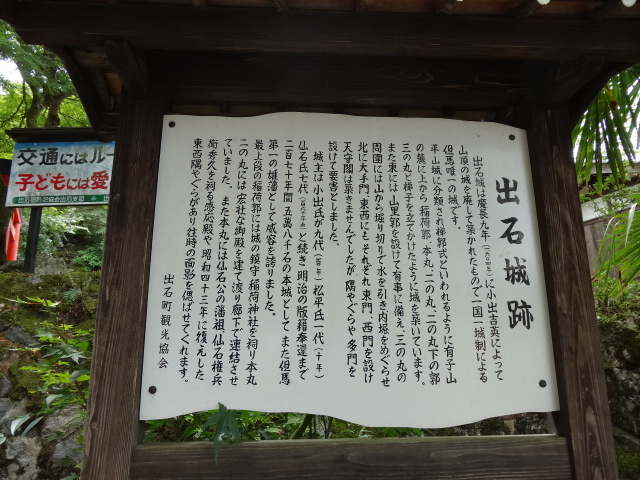 出石城跡
出石城は慶長九年(一六〇四年)に小出吉英によって
山頂の城を廃して築かれたもので一国一城制による
但馬唯一の城です。
平山城に分類され梯郭式といわれるように有子山
の麓に上から稲荷郭、本丸、二の丸、二の丸下の郭
三の丸と梯子を立てかけたように城を築いています。
また東には山里郭を設けて有事に備え、三の丸の
周囲には山から堀り切りて水を引き内堀をめぐらせ
北に大手門、東西にもそれぞれ東門、西門を設け
天守閣は築きませんでしたが隅やぐらや多門を
設けて要害としました。
城主は小出氏が九代 松平氏一代(十年)
仙石氏七代 と続き明治の版籍奉還まで
二百七十年間 五萬八千石の本城として また但馬
第一の雄藩として威容を誇りました。
最上段の稲荷郭には城の鎮守 稲荷神社を祠り本丸
二の丸には宏壮な御殿を建て渡り廊下で連結させ
ていました。また本丸には仙石公の藩祖仙石権兵
衛秀久を祠る感応殿や昭和四十三年に復えした
東西隅やぐらがあり往時の面影を偲ばせてくれます。
出石町観光協会
交通にはルー
子どもには愛